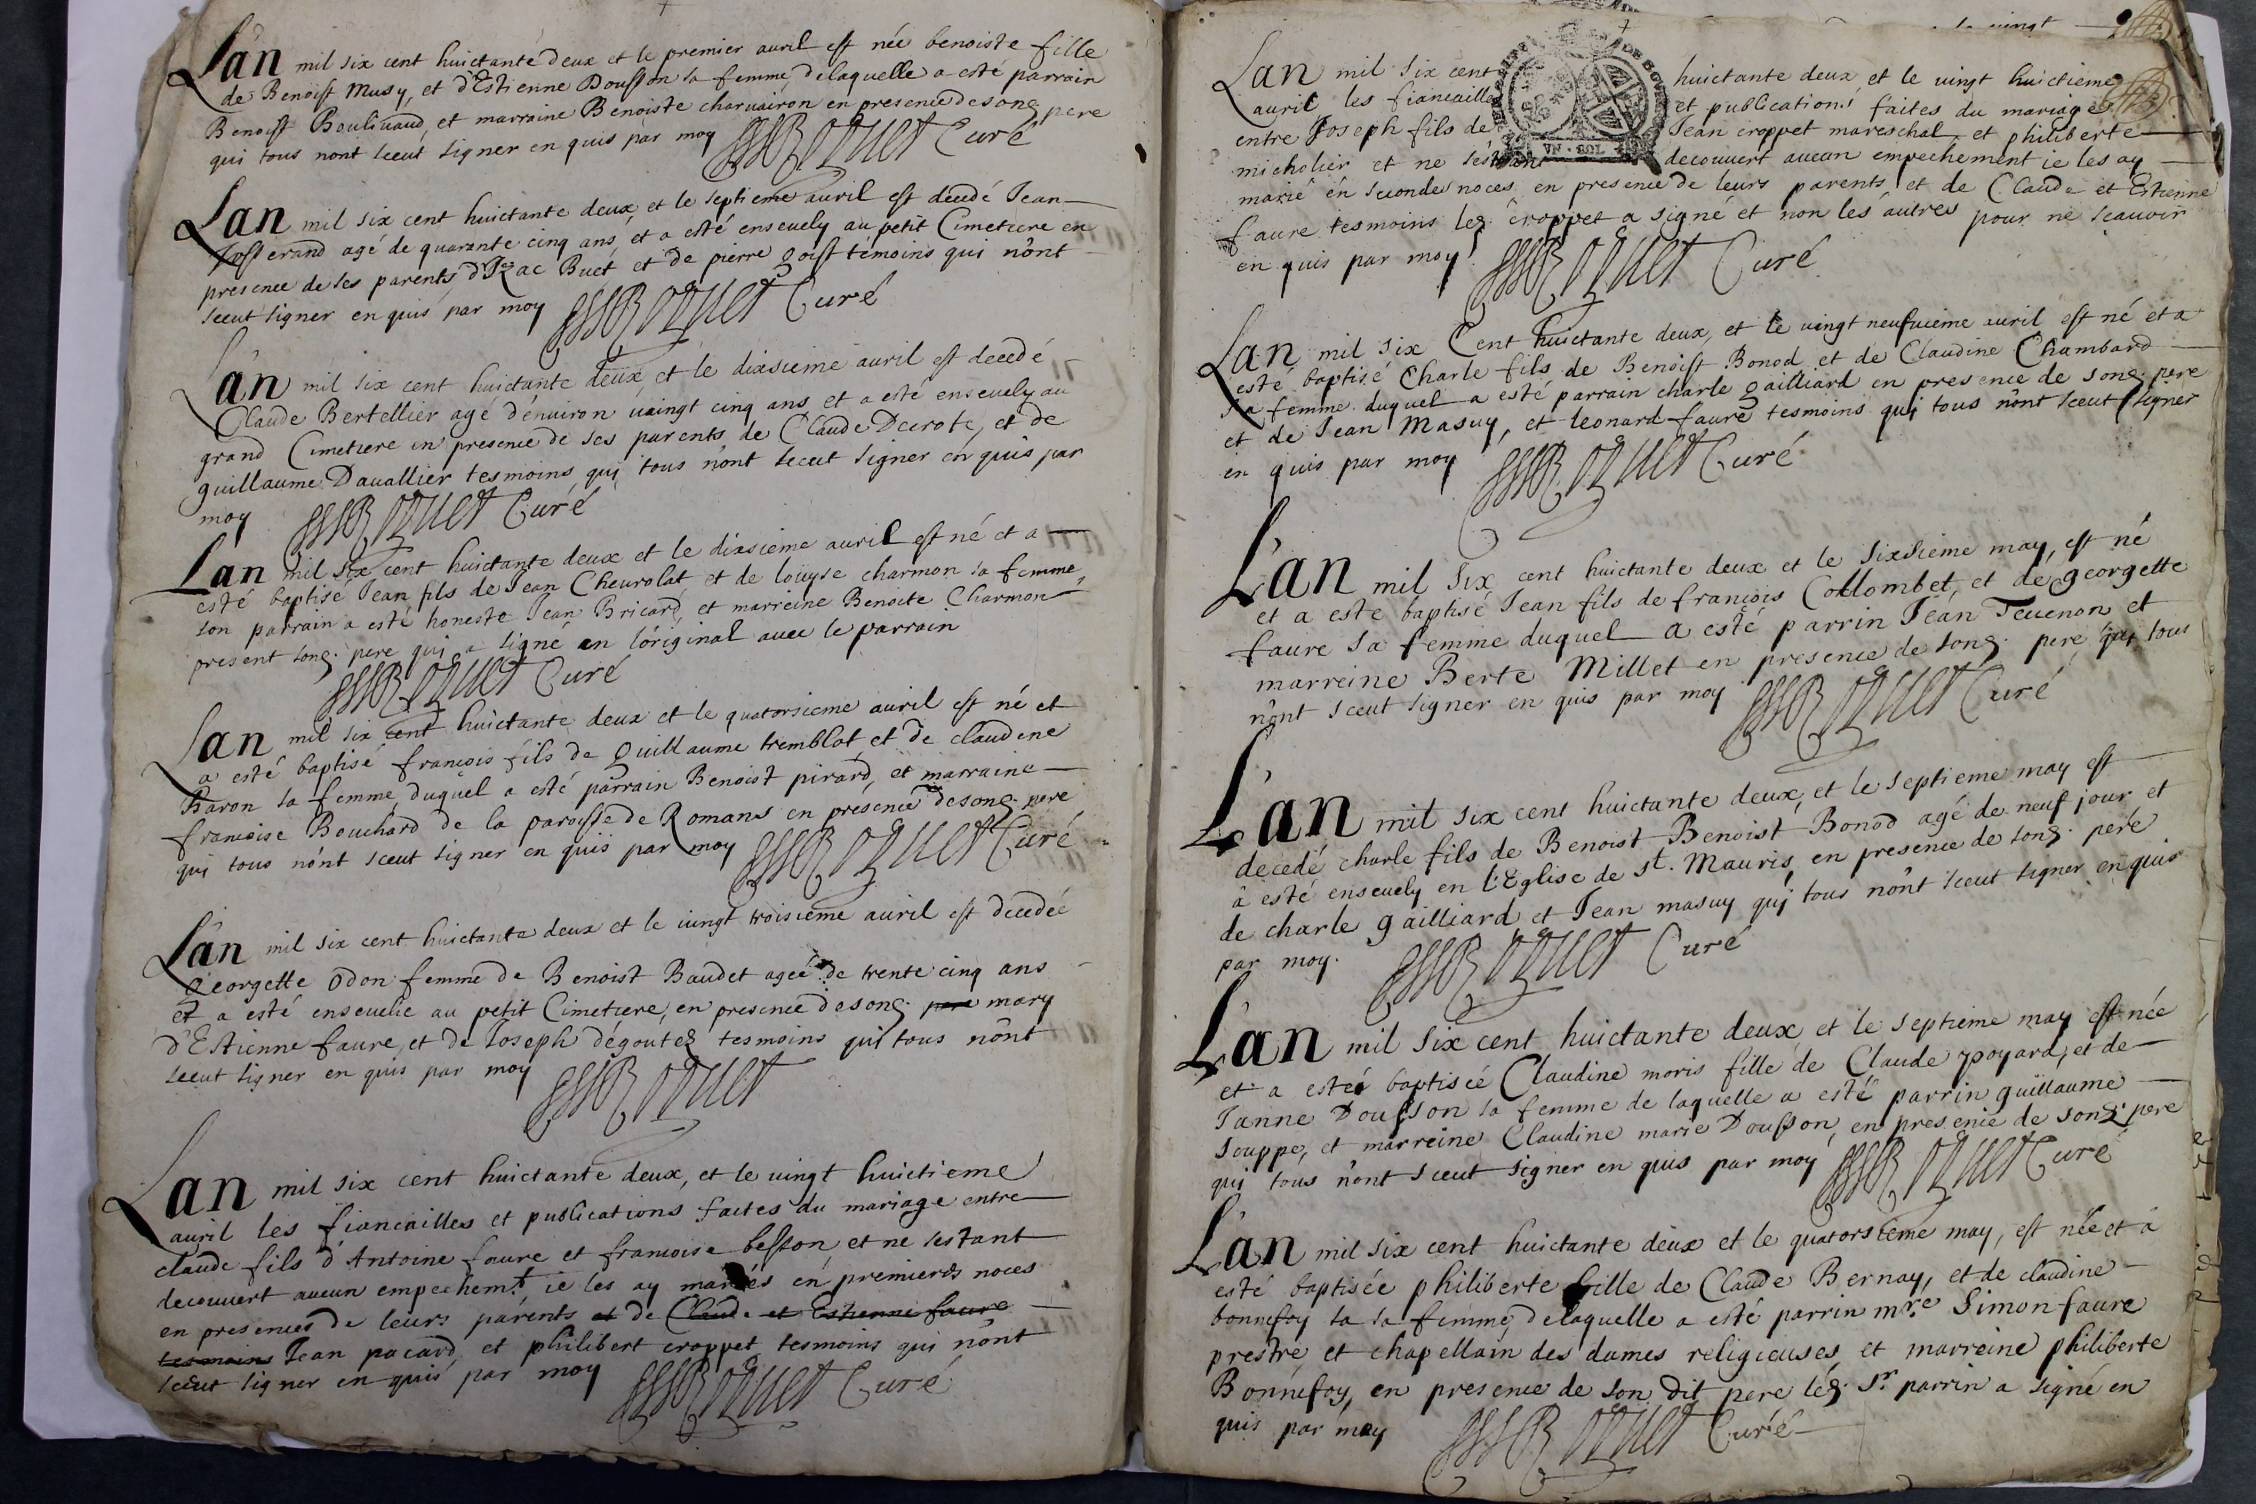 Lan mil six cent huictante deux et le premier auril est née benoiste fille
de Benoist Musy, et d'Estienne Dousson sa femme, delaquelle a esté parrain
Benoist Boulivaud, et marraine Benoiste charuairon en presence de song pere
qui tous nont sceut signer en quis par moy Curé
Lan mil six cent huictante deux, et le septieme auril est decedé Jean
Josserand agé de quarante cinq ans, et a esté enseuely au petit Cimetiere en
presence de ses parents, d'Izac Buet et de pierre goist témoins qui nônt
sceut signer en quis par moy Curé
Lan mil six cent huictante deux, et le dixsieme auril est decedé
Claude Bertellier agé d'enuiron uaingt cinq ans et a esté enseuely au
grand Cimetiere en presence de ses parents de Claude Decrote, et de
guillaume Dauallier tesmoins, qui tous nônt sceut signer en quis par
moy Curé
Lan mil six cent huictante deux et le dixsieme auril est né et a
esté baptisé Jean fils de Jean Cheurolat, et de loüyse charmon sa femme,
son parrain a esté honeste Jean Bricard, et marreine Benoite Charmon
present song. pere qui a signé en l'original auec le parrain
Curé
Lan mil six cent huictante deux et le quatorsieme auril est né et
a esté baptisé françois fils de guillaume tremblot, et de claudene
Baron sa femme, duquel a esté parrain Benoist pirard, et marraine
francoise Bouchard de la paroisse de Romans en presence de song. pere
qui tous nônt sceut signer en quis par moy Curé
Lan mil six cent huictante deux et le uingt troisieme auril est decedée
Georgette Odon femme de Benoist Baudet ageé de trente cinq ans
et a esté enseuelie au petit Cimetiere, en presence de song. pere mary
d'Estienne faure, et de Joseph dégoutez tesmoins qui tous nônt
sceut signer en quis par moy
Lan mil six cent huictante deux, et le uingt huictieme
auril les fiancailles et publications faites du mariage entre
claude fils d'Antoine faure et francoise besson, et ne sestant
decouuert aucun empechemt. ie les ay mariés en premieres noces
en presences de leurs parents et de Claude et Estienne faure
tesmoins Jean pacard, et philibert croppet tesmoins qui nônt
sceut signer en quis par moy Curé
le uingt
Lan mil six cent huictante deux, et le uingt huictieme
auril les fiancailles et publications faites du mariage
entre Joseph fils de Jean croppet mareschal et philiberte
micholier et ne sestant decouuert aucun empechement ie les ay
VN · SOL
marié en secondes noces en presence de leurs parents et de Claude et Estienne
faure tesmoins lez. croppet a signé et non les autres pour ne scauoir
en quis par moy Curé
Lan mil six Cent huictante deux, et le uingt neufuieme auril est né et a
esté baptisé Charle fils de Benoist Bonod et de Claudine Chambard
sa femme duquel a esté parrain charle gailliard en presence de song. pere
et de Jean Masuy, et leonard faure tesmoins qui tous nônt sceut signer
en quis par moy Curé
L'an mil six cent huictante deux et le sixsieme may, est né
et a este baptisé Jean fils de françois Collombet, et de georgette
faure sa femme duquel a esté parrin Jean Teuenon et
marreine Berte Millet en presence de song. pere qui tous
nônt sceut signer en quis par moy Curé
L'an mil six cent huictante deux, et le septieme may est
decedé charle fils de Benoist Benoist Bonod agé de neuf jour, et
à esté enseuely en l'Eglise de st. Mauris, en presence de song. pere
de charle gailliard et Jean masuy qui tous nônt sceut signer en quis
par moy. Curé
L'an mil six cent huictante deux, et le septieme may est née
et a esteé baptiseé Claudine moris fille de Claude poyard, et de
Janne Dousson sa femme de laquelle a esté parrin guillaume
souppe, et marreine Claudine marie Dousson, en presence de song. pere
qui tous nônt sceut signer en quis par moy Curé
L'an mil six cent huictante deux et le quatorsieme may, est née et à
esté baptisée philiberte fille de Claude Bernay, et de claudine
bonnefoy sa sa femme, delaquelle a esté parrin mre. Simon faure
prestre, et chapellain des dames religieuses, et marreine philiberte
Bonnefoy, en presence de son dit pere léz. Sr. parrin a signé en
quis par moy Curé